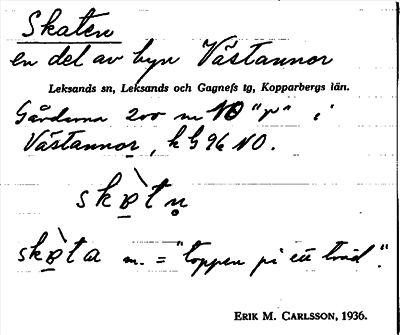 Skaten
en del av byn Västannor
Leksands sn, Leksands och Gagnefs tg, Kopparbergs län.
Gårdarna 200 m NO "p" i
Västannor, k b 96 NO.
skɒ̀tn̥
skɒ̀ta m. = "toppen på ett träd".
ERIK M. CARLSSON, 1936.